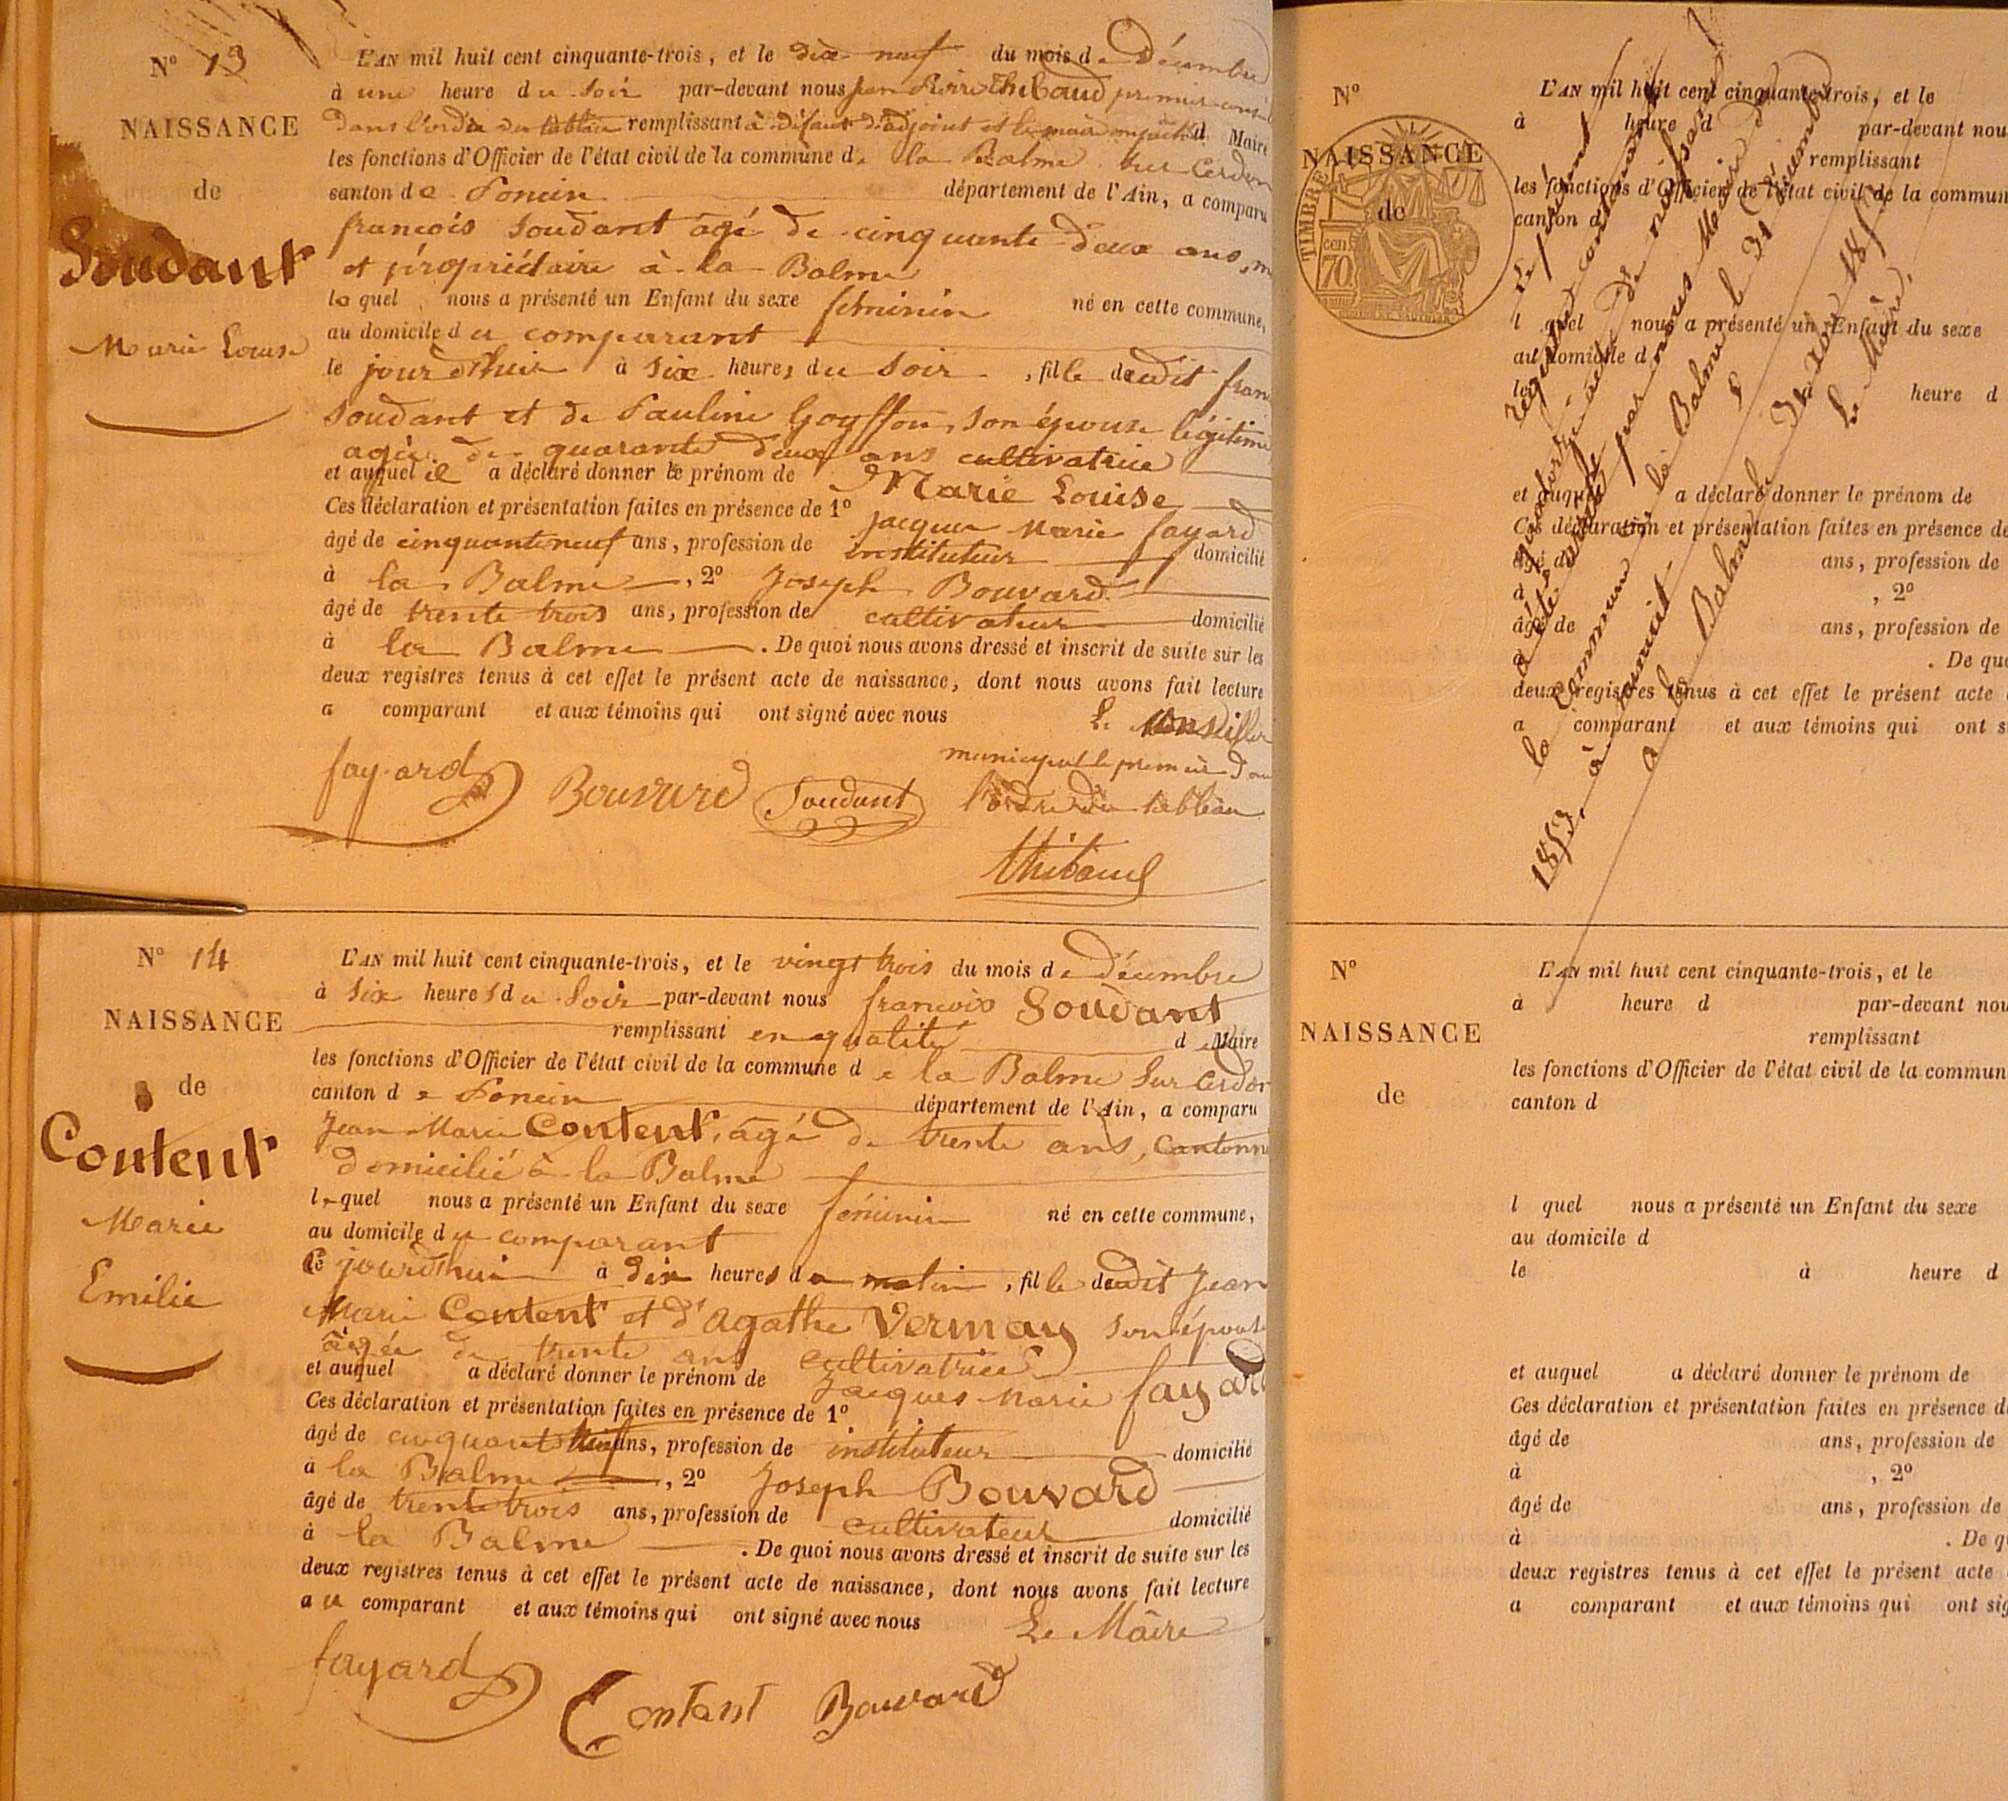 N° 13
NAISSANCE
de
Soudant
Marie Louise
L'AN mil huit cent cinquante-trois, et le dix neuf du mois de Décembre
à une heure du Soir par-devant nous Jean Pierre Thibaud premier
dans l'ordre du tableau remplissant à défaut d'adjoint et le maire d Maire
les fonctions d'Officier de l'état civil de la commune de la Balme sur Cerdon
canton de Poncin département de l'Ain, a comparu
françois Soudant âgé de cinquante deux ans,
et propriétaire à la Balme
lequel nous a présenté un Enfant du sexe féminin né en cette commune,
au domicile du comparant
le jourd'huis à Six heures du Soir, fille dudit fran
Soudant et de Pauline Goyffon, son épouse légitime
agée de quarante deux ans cultivatrice
et auquel il a déclaré donner le prénom de Marie Louise
Ces déclaration et présentation faites en présence de 1° Jacques Marie fayard
âgé de cinquante neuf ans, profession de instituteur domicilié
à la Balme, 2° Joseph Bouvard
âgé de trente trois ans, profession de cultivateur domicilié
à la Balme. De quoi nous avons dressé et inscrit de suite sur les
deux registres tenus à cet effet le présent acte de naissance, dont nous avons fait lecture
a comparant et aux témoins qui ont signé avec nous Le Conseiller
municipal le premier dans
l'ordre du tableau
fayard Bouvard Soudant
Thibaud
N° 14
NAISSANCE
de
Content
Marie
Emilie
L'AN mil huit cent cinquante-trois, et le vingt trois du mois de Décembre
à Six heures du Soir par-devant nous françois Soudant
remplissant en qualité de Maire
les fonctions d'Officier de l'état civil de la commune de la Balme Sur Cerdon
canton de Poncin département de l'Ain, a comparu
Jean Marie Content, âgé de trente ans, Cantonn
domicilié à la Balme
lequel nous a présenté un Enfant du sexe féminin né en cette commune,
au domicile du comparant
Ce jourd'hui à Dix heures du matin, fille dudit Jean
Marie Content et d'Agathe Vermay son épouse
âgée de trente ans cultivatrice
et auquel a déclaré donner le prénom de
Ces déclaration et présentation faites en présence de 1° Jacques Marie fayard
âgé de cinquante neuf ans, profession de instituteur domicilié
à la Balme, 2° Joseph Bouvard
âgé de trente trois ans, profession de cultivateur domicilié
à la Balme. De quoi nous avons dressé et inscrit de suite sur les
deux registres tenus à cet effet le présent acte de naissance, dont nous avons fait lecture
au comparant et aux témoins qui ont signé avec nous Le Maire
fayard Content Bouvard
N°
NAISSANCE
de
TIMBRE
70 cen
L'AN mil huit cent cinquante-trois, et le
à heure d par-devant nou
remplissant
les fonctions d'Officier de l'état civil de la commun
canton d
l quel nous a présenté un Enfant du sexe
au domicile d
le heure d
et auquel a déclaré donner le prénom de
Ces déclaration et présentation faites en présence de
âgé de ans, profession de
à , 2°
âgé de ans, profession de
à . De quo
deux registres tenus à cet effet le présent acte
a comparant et aux témoins qui ont s
Le présent
registre contenant
quatorze actes de naissance
a été clôturé par nous Maire de
la commune de la Balme le 31 Décembre
1853, à minuit
a la Balme le 31 Xbre 1853
Le Maire,
N°
NAISSANCE
de
L'AN mil huit cent cinquante-trois, et le
à heure d par-devant nou
remplissant
les fonctions d'Officier de l'état civil de la commun
canton d
l quel nous a présenté un Enfant du sexe
au domicile d
le à heure d
et auquel a déclaré donner le prénom de
Ces déclaration et présentation faites en présence de
âgé de ans, profession de
à , 2°
âgé de ans, profession de
à . De q
deux registres tenus à cet effet le présent acte
a comparant et aux témoins qui ont sig